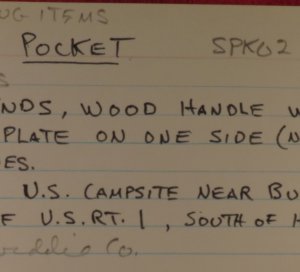 UG ITEMS
POCKET SPKG2
S
NDS, WOOD HANDLE W
PLATE ON ONE SIDE (N
ES.
U.S. CAMPSITE NEAR BU
F U.S.RT. 1, SOUTH OF H
Co.